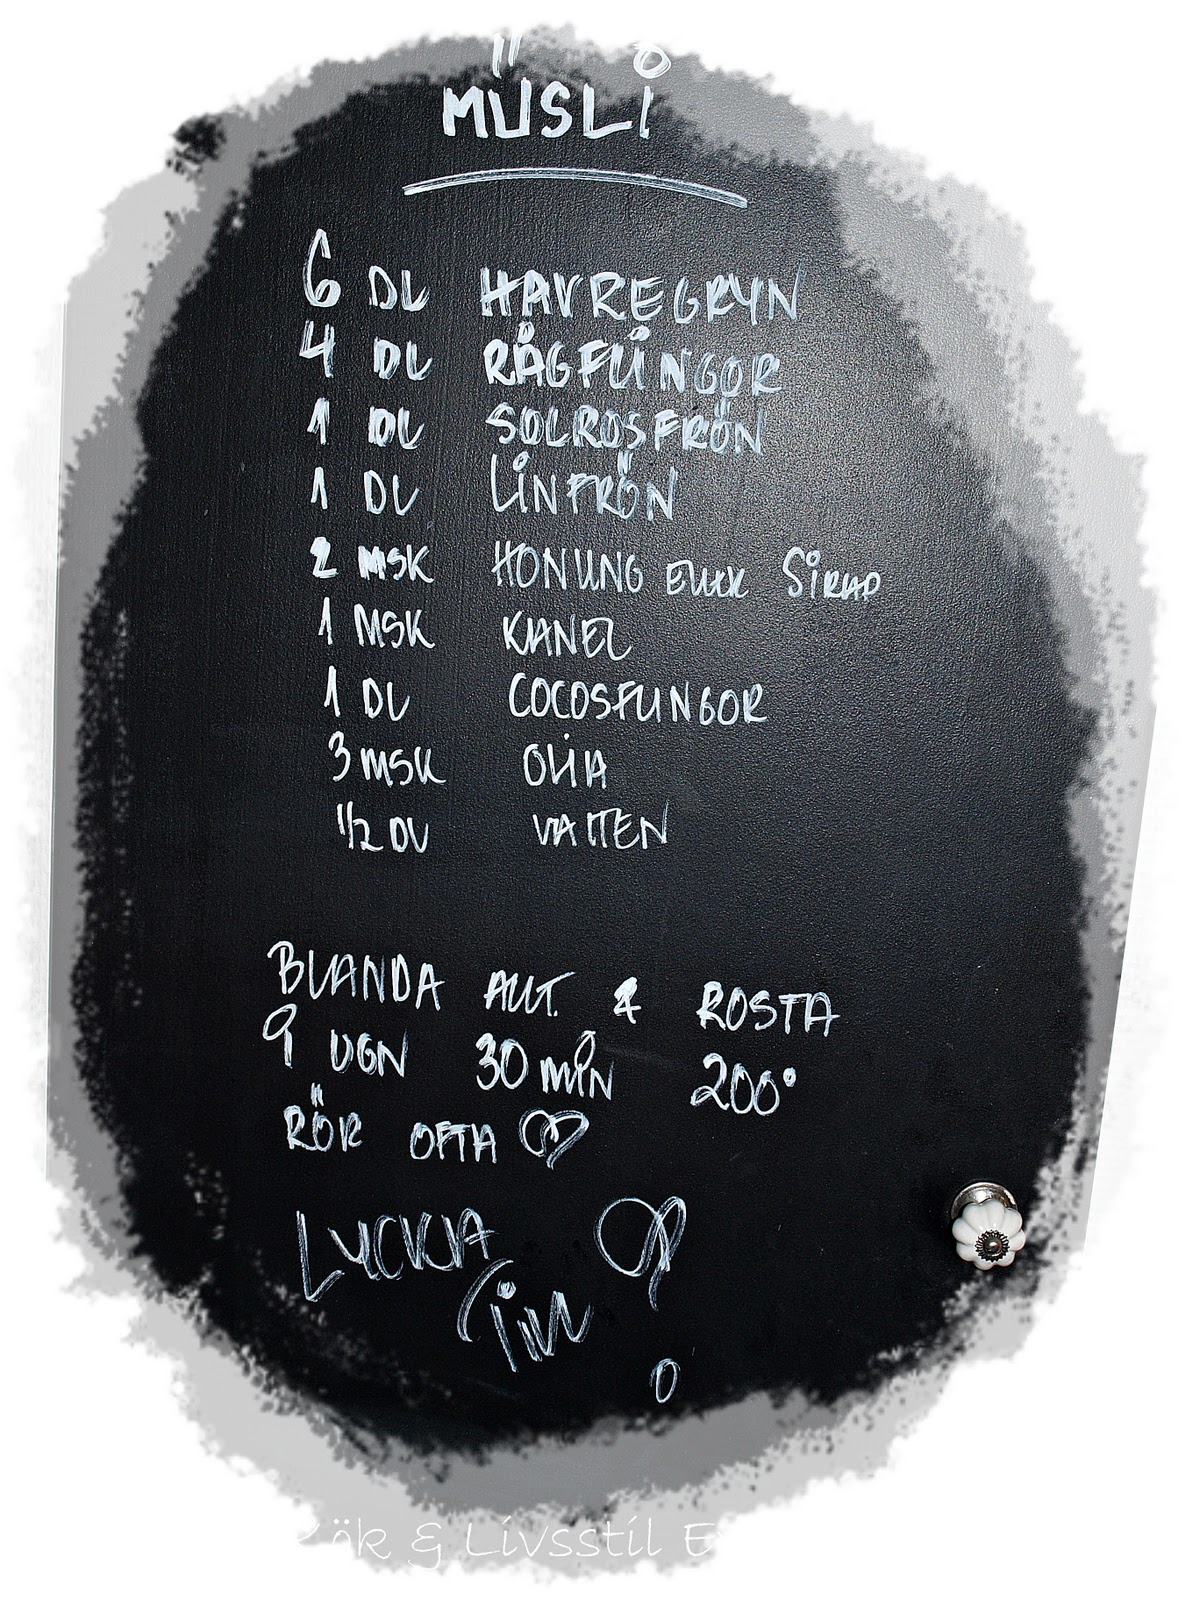 MÜSLI
6 DL HAVREGRYN
4 DL RÅGFLINGOR
1 DL SOLROSFRÖN
1 DL LINFRÖN
2 MSK HONUNG ELLER SIRAP
1 MSK KANEL
1 DL COCOSFLINGOR
3 MSK OLJA
1/2 DL VATTEN
BLANDA ALLT. & ROSTA
I UGN 30 MIN 200°
RÖR OFTA ♡
LYCKA
TILL
ök & Livsstil E